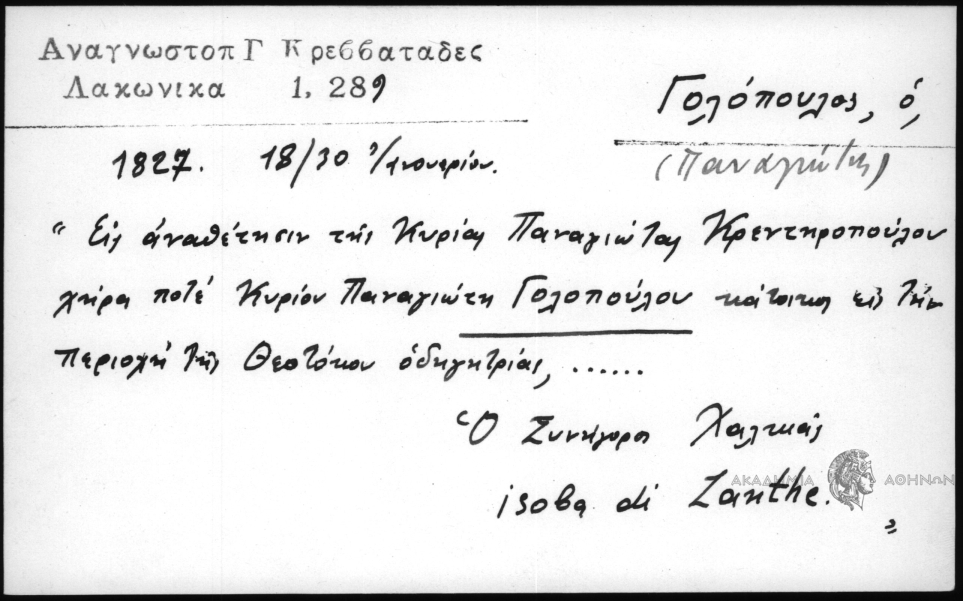 Αναγνωστοπ Γ Κρεββαταδες
Λακωνικα 1, 289
Γολόπουλος, ὁ,
(Παναγιώτης)
1827. 18/30 Ἰανουερίου.
“ Εἰς ἀναθέτησιν τῆς Κυρίας Παναγιώτας Κρεντηροπούλου
χήρα ποτέ Κυρίου Παναγιώτη Γολοπούλου κάτοικος εἰς τὴν
περιοχὴ τῆς Θεοτόκου ὁδηγητρίας, ......
Ὁ Συνήγορος Χαλκιᾶς
isoba di Zanthe.
”
ΑΚΑΔΗΜΙΑ ΑΘΗΝΩΝ